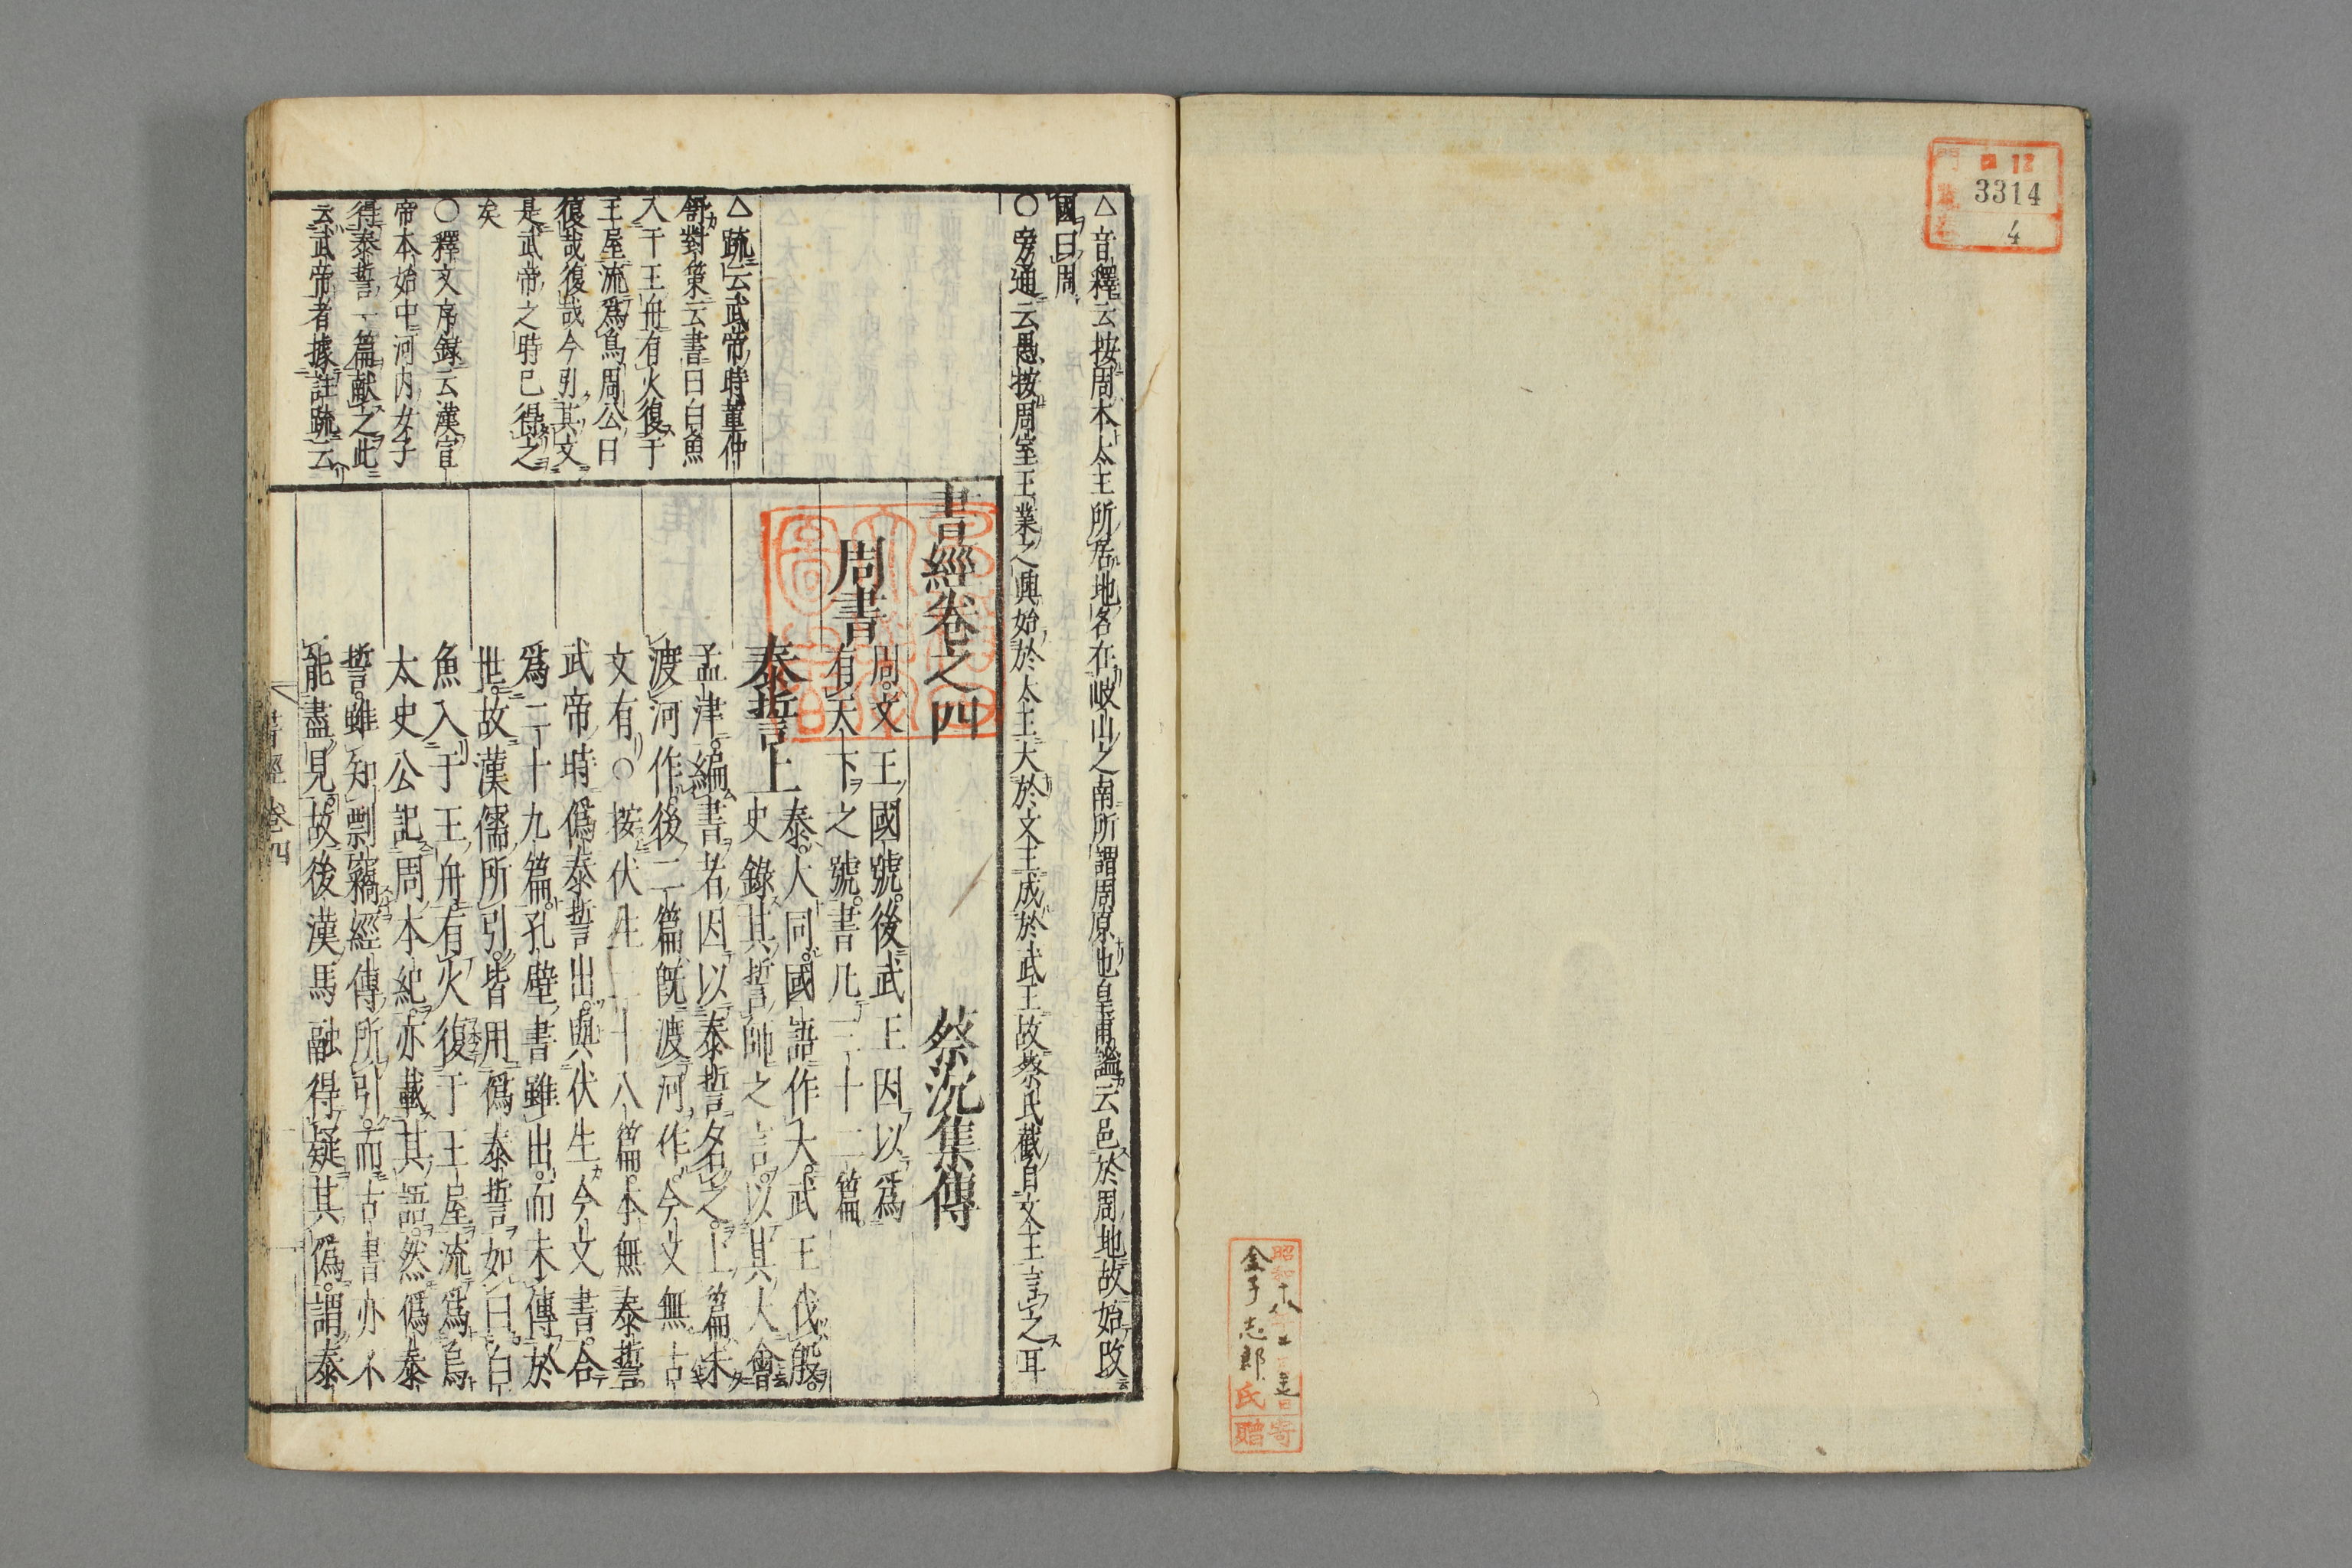 3314
4
金子志郎氏
寄贈
△音釋云按周本太王所居地名在岐山之南所謂周原也皇甫謐云邑於周地故始改
國曰周
○旁通云愚按周室王業之興始於太王大於文王成於武王故蔡氏截自文王言之耳
△疏云武帝時董仲
舒對策云書曰白魚
入于王舟有火復于
王屋流爲烏周公曰
復哉復哉今引其文
是武帝之時已得之
矣
○釋文序録云漢宣
帝本始中河内女子
得泰誓一篇献之此
云武帝者據註疏云
書經卷之四
蔡沉集傳
周書
周文王國號後武王因以爲
有天下之號書凡三十二篇
泰誓上
泰大同國語作大武王伐殷
史錄其誓師之言以其大會
孟津編書者因以泰誓名之上篇未
渡河作後二篇既渡河作今文無古
文有○按伏生二十八篇本無泰誓
武帝時僞泰誓出與伏生今文書合
爲二十九篇孔壁書雖出而未傳於
世故漢儒所引皆用僞泰誓如曰白
魚入于王舟有火復于王屋流爲烏
太史公記周本紀亦載其語然僞泰
誓雖知剽竊經傳所引而古書亦不
能盡見故後漢馬融得疑其僞謂泰
書經卷四